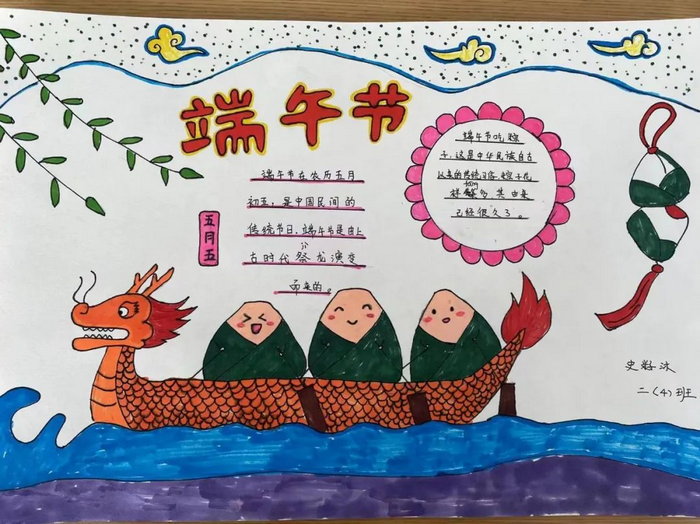 端午节
端午节在农历五月
初五，是中国民间的
传统节日，端午节是由上
古时代祭龙演变
而来的。
五月五
端午节吃粽
子，这是中华民族自古
以来的传统习俗，粽子花
样 多 其由来
已经很久了。
史籽沐
二（4）班